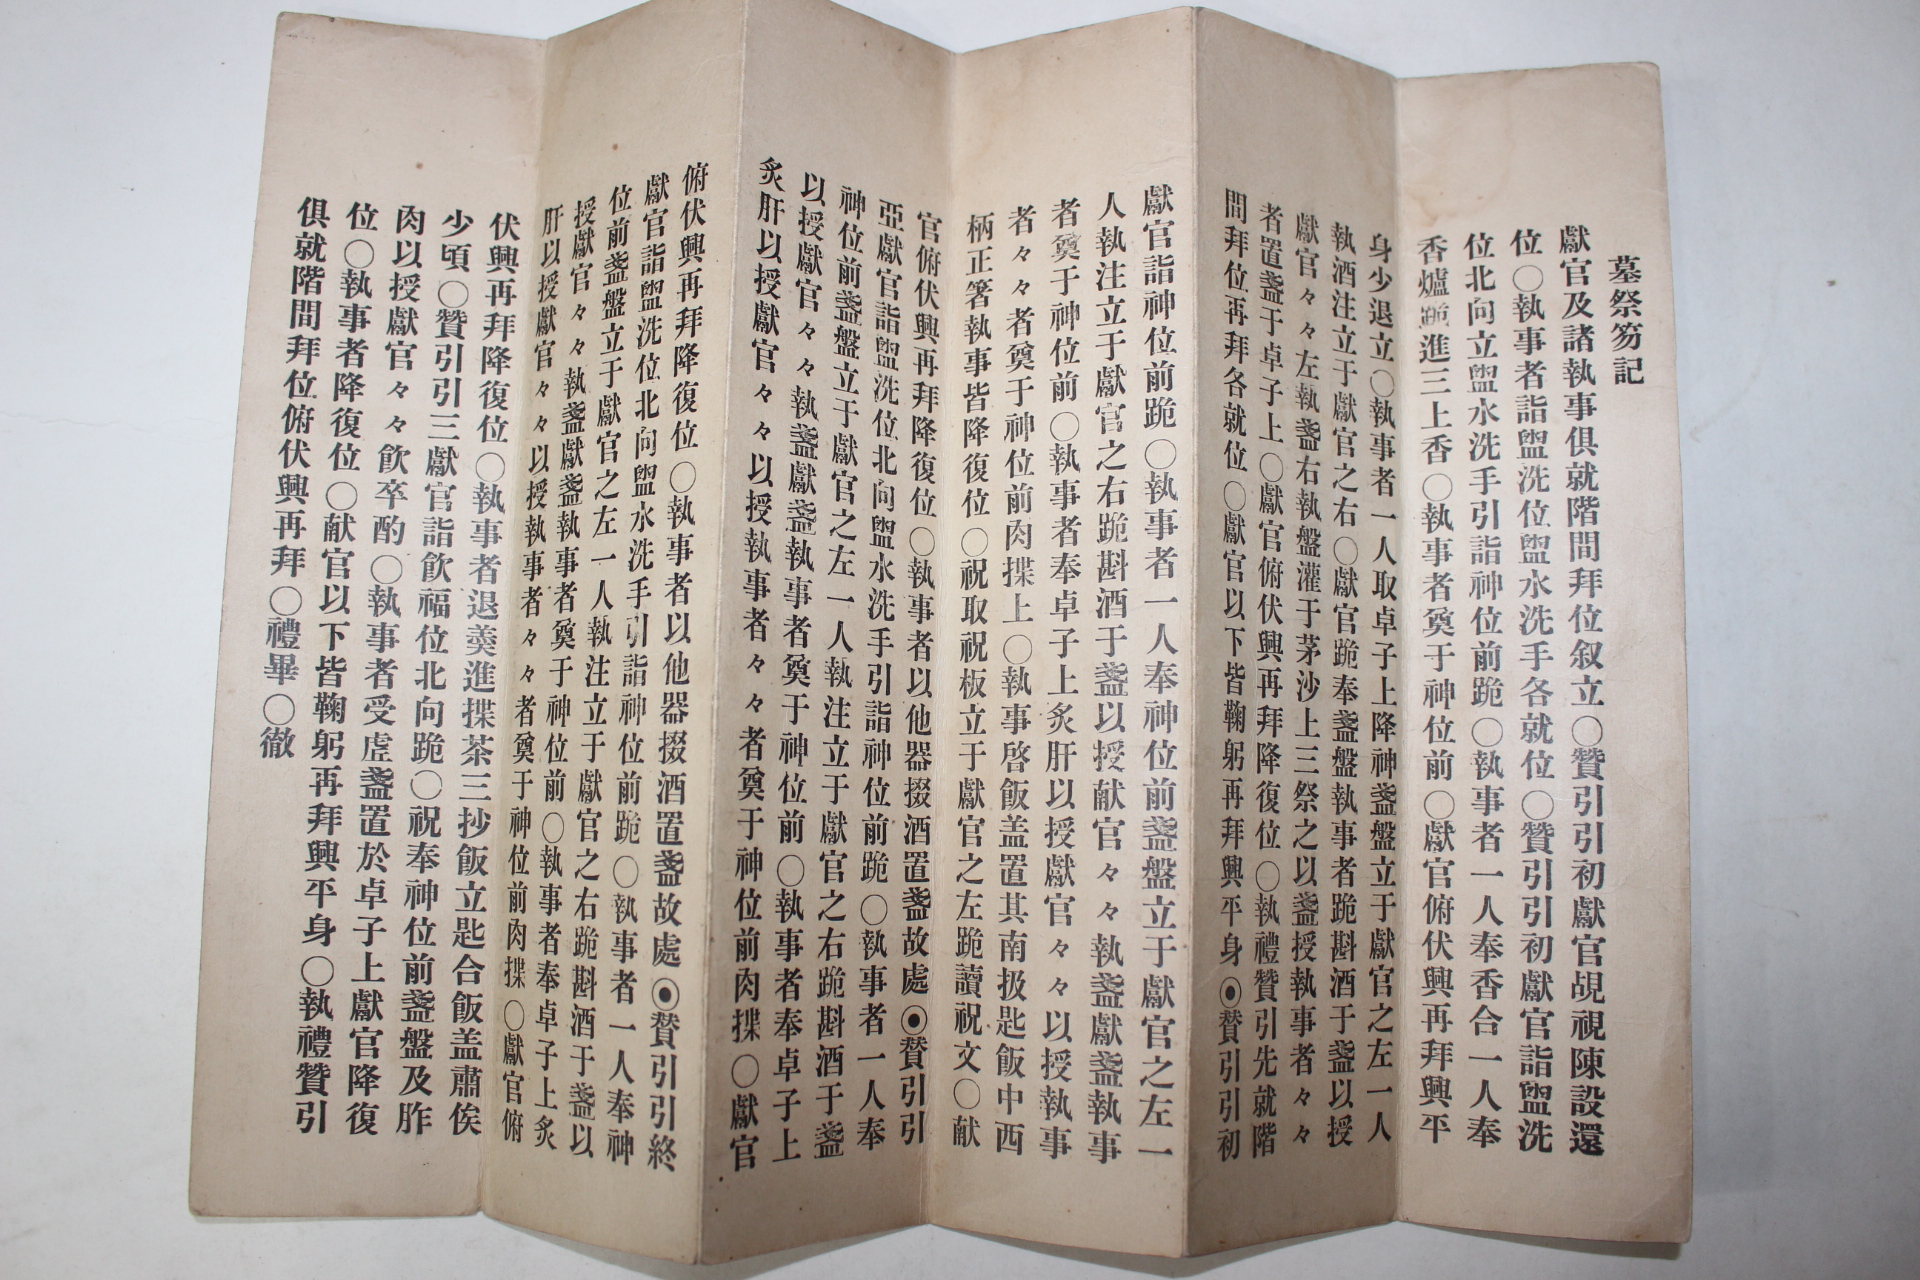 墓祭笏記
獻官及諸執事俱就階間拜位叙立○贊引引初獻官覘視陳設還
位○執事者詣盥洗位盥水洗手各就位○贊引引初獻官詣盥洗
位北向立盥水洗手引詣神位前跪○執事者一人奉香合一人奉
香爐跪進三上香○執事者奠于神位前○獻官俯伏興再拜興平
身少退立○執事者一人取卓子上降神盞盤立于獻官之左一人
執酒注立于獻官之右○獻官跪奉盞盤執事者跪斟酒于盞以授
獻官々々左執盞右執盤灌于茅沙上三祭之以盞授執事者々々
者置盞于卓子上○獻官俯伏興再拜降復位○執禮贊引先就階
間拜位再拜各就位○獻官以下皆鞠躬再拜興平身◉贊引引初
獻官詣神位前跪○執事者一人奉神位前盞盤立于獻官之左一
人執注立于獻官之右跪斟酒于盞以授献官々々執盞獻盞執事
者奠于神位前○執事者奉卓子上炙肝以授獻官々々以授執事
者々々者奠于神位前肉揲上○執事啓飯盖置其南扱匙飯中西
柄正箸執事皆降復位○祝取祝板立于獻官之左跪讀祝文○献
官俯伏興再拜降復位○執事者以他器掇酒置盞故處◉贊引引
亞獻官詣盥洗位北向盥水洗手引詣神位前跪○執事者一人奉
神位前盞盤立于獻官之左一人執注立于獻官之右跪斟酒于盞
以授獻官々々執盞獻盞執事者奠于神位前○執事者奉卓子上
炙肝以授獻官々々以授執事者々々者奠于神位前肉揲○獻官
俯伏興再拜降復位○執事者以他器掇酒置盞故處◉贊引引終
獻官詣盥洗位北向盥水洗手引詣神位前跪○執事者一人奉神
位前盞盤立于獻官之左一人執注立于獻官之右跪斟酒于盞以
授獻官々々執盞獻盞執事者奠于神位前○執事者奉卓子上炙
肝以授獻官々々以授執事者々々者奠于神位前肉揲○獻官俯
伏興再拜降復位○執事者退羹進揲茶三抄飯立匙合飯盖肅俟
少頃○贊引引三獻官詣飮福位北向跪○祝奉神位前盞盤及胙
肉以授獻官々々飮卒酌○執事者受虗盞置於卓子上獻官降復
位○執事者降復位○献官以下皆鞠躬再拜興平身○執禮贊引
俱就階間拜位俯伏興再拜○禮畢○徹